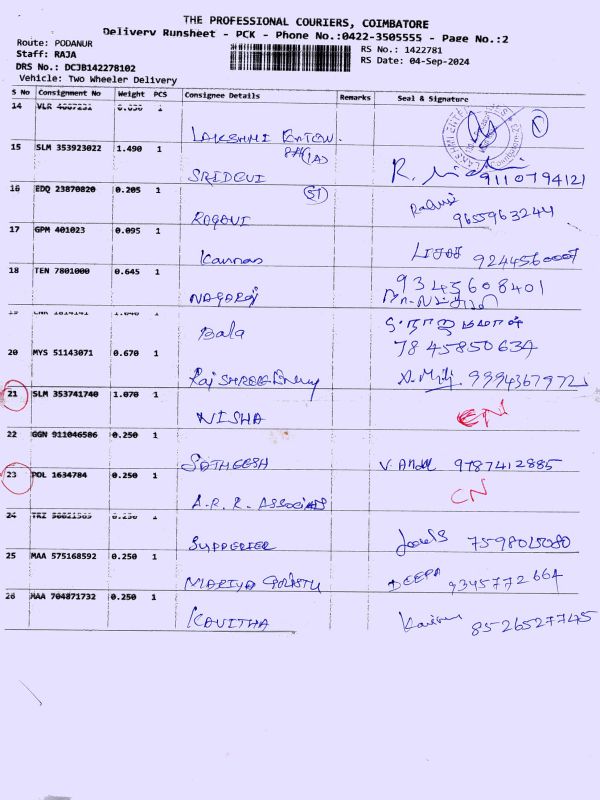 THE PROFESSIONAL COURIERS, COIMBATORE
Delivery Runsheet - PCK - Phone No.:0422-3505555 - Page No.:2
Route: PODANUR
Staff: RAJA
DRS No.: DCJB142278102
Vehicle: Two Wheeler Delivery
RS No.: 1422781
RS Date: 04-Sep-2024
S No Consignment No Weight PCS Consignee Details Remarks Seal & Signature
14 VLR 1
LAKSHMI
15 SLM 353923022 1.490 1
SRIDEVI R. 9110794121
16 EDQ 23870820 0.205 1 (S1)
RAGAVI 9655963244
17 GPM 401023 0.095 1
Kannan 9244560007
18 TEN 7801000 0.645 1
NAGARAJ 9345608401
19
Bala
20 MYS 51143071 0.670 1 7845850634
Raj SHREE Energy 9994367972
21 SLM 353741740 1.070 1
NISHA CN
22 GGN 911046586 0.250 1
SATHEESH 9787412885
23 POL 1634784 0.250 1
A.R.R. ASSOCIATES CN
24 TRZ 1
SUPPERIER 7598015080
25 MAA 575168592 0.250 1
MARIYA DEEPA 9345772664
26 MAA 704871732 0.250 1
KAVITHA 8526527745